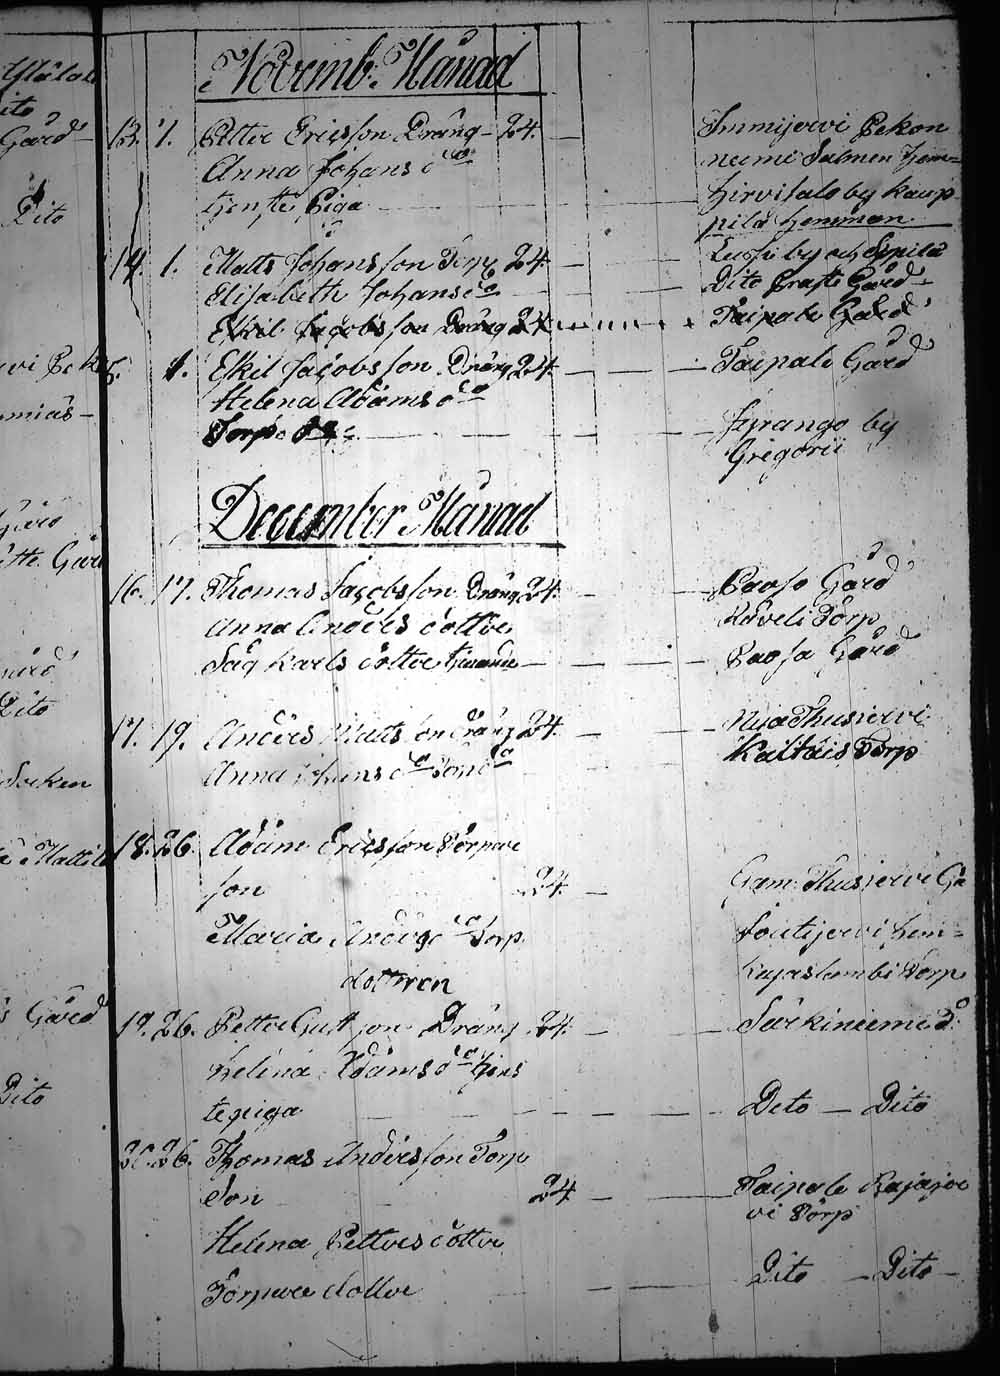 Novemb: Månad
13. 1. Petter Ericsson Dräng - 24. Immijervi Pekon
Anna Johans dr niemi Salmen hem=
tjenste Piga hirvisalo by Kaup
pila hemman
14. 1. Matts Johansson Torp 24. by och Eppilä
Elisabeth Johans dr Dito Gård
Eskil Jacobsson Dräng 24 Taipale Gård
1. Eskil Jacobsson Dräng 24 Taipale Gård
Helena Adams dr
Torp dr Jyrängo by
Gregorii
December Månad
16. 17. Thomas Jacobsson Dräng 24. Paaso Gård
Anna Anders dotter Råveli Torp
Karls dotter Paaso Gård
17. 19. Anders Mattsson Dräng 24. Nya Thusiervi
Anna Johans dr Kaltais Torp
18. 26. Adam Ericsson Torpare
son 24. Gam. Thusiervi Gå
Maria Anders dr Torp Soutijervi hem=
dottren Kajaslambi Torp
19. 26. Petter Gust son Dräng 24. Särkiniemi d:
Helena Adams dr tjens
tepiga Deto — Dito
20. 26. Thomas Andersson Torp
Son 24 Taipale Rajajer
vi Torp
Helena Petters dotter
Torpare dotter Dito — Dito —
Gård
Dito
Gård
Dito
Socken
Gård
Dito